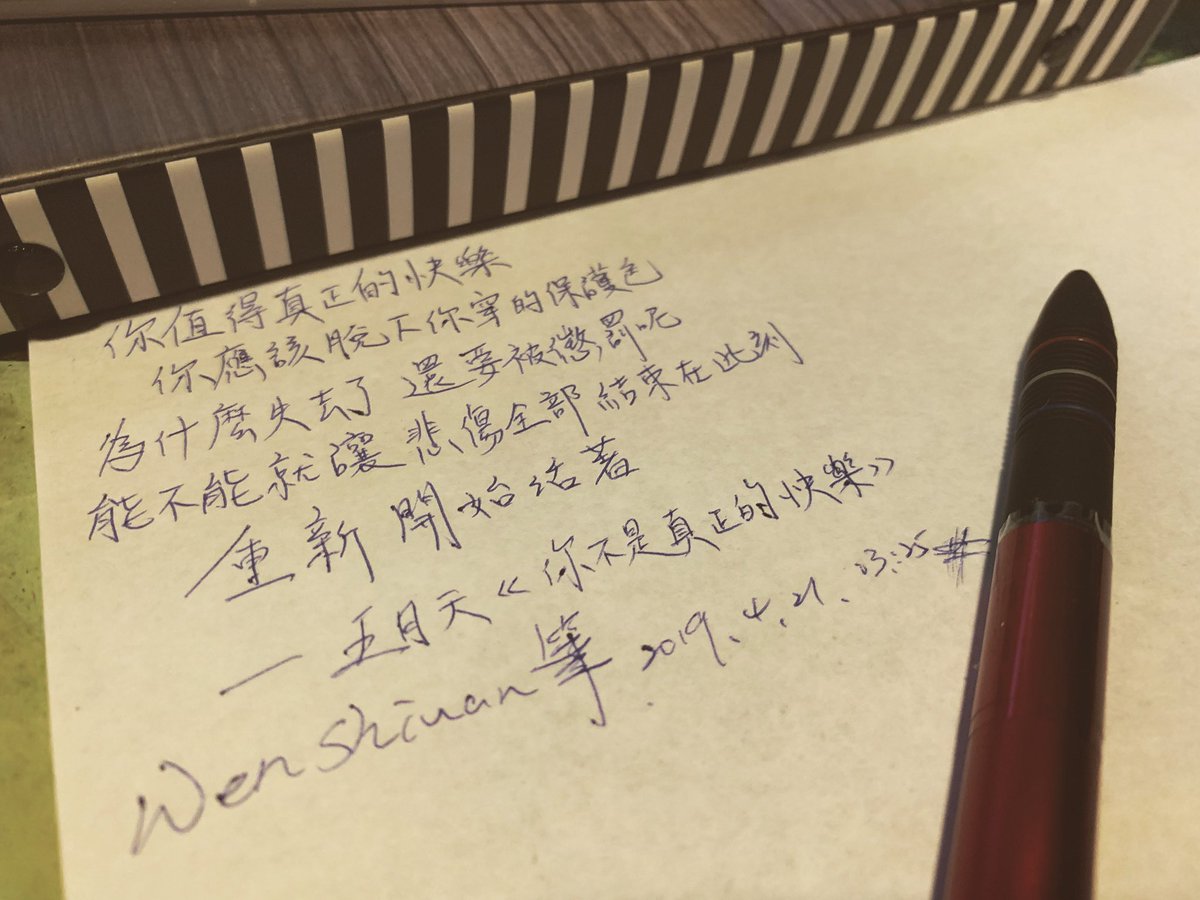 你值得真正的快樂
你應該脫下你穿的保護色
為什麼失去了 還要被懲罰呢
能不能就讓 悲傷全部 結束在此刻
重新 開始活著
— 五月天《你不是真正的快樂》
Wenshiuan筆 2019.4.21. 03:25